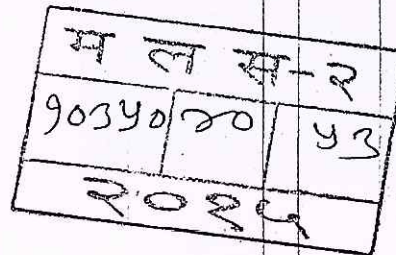 म ल स-२
१०३५० २० ५३
२०१५